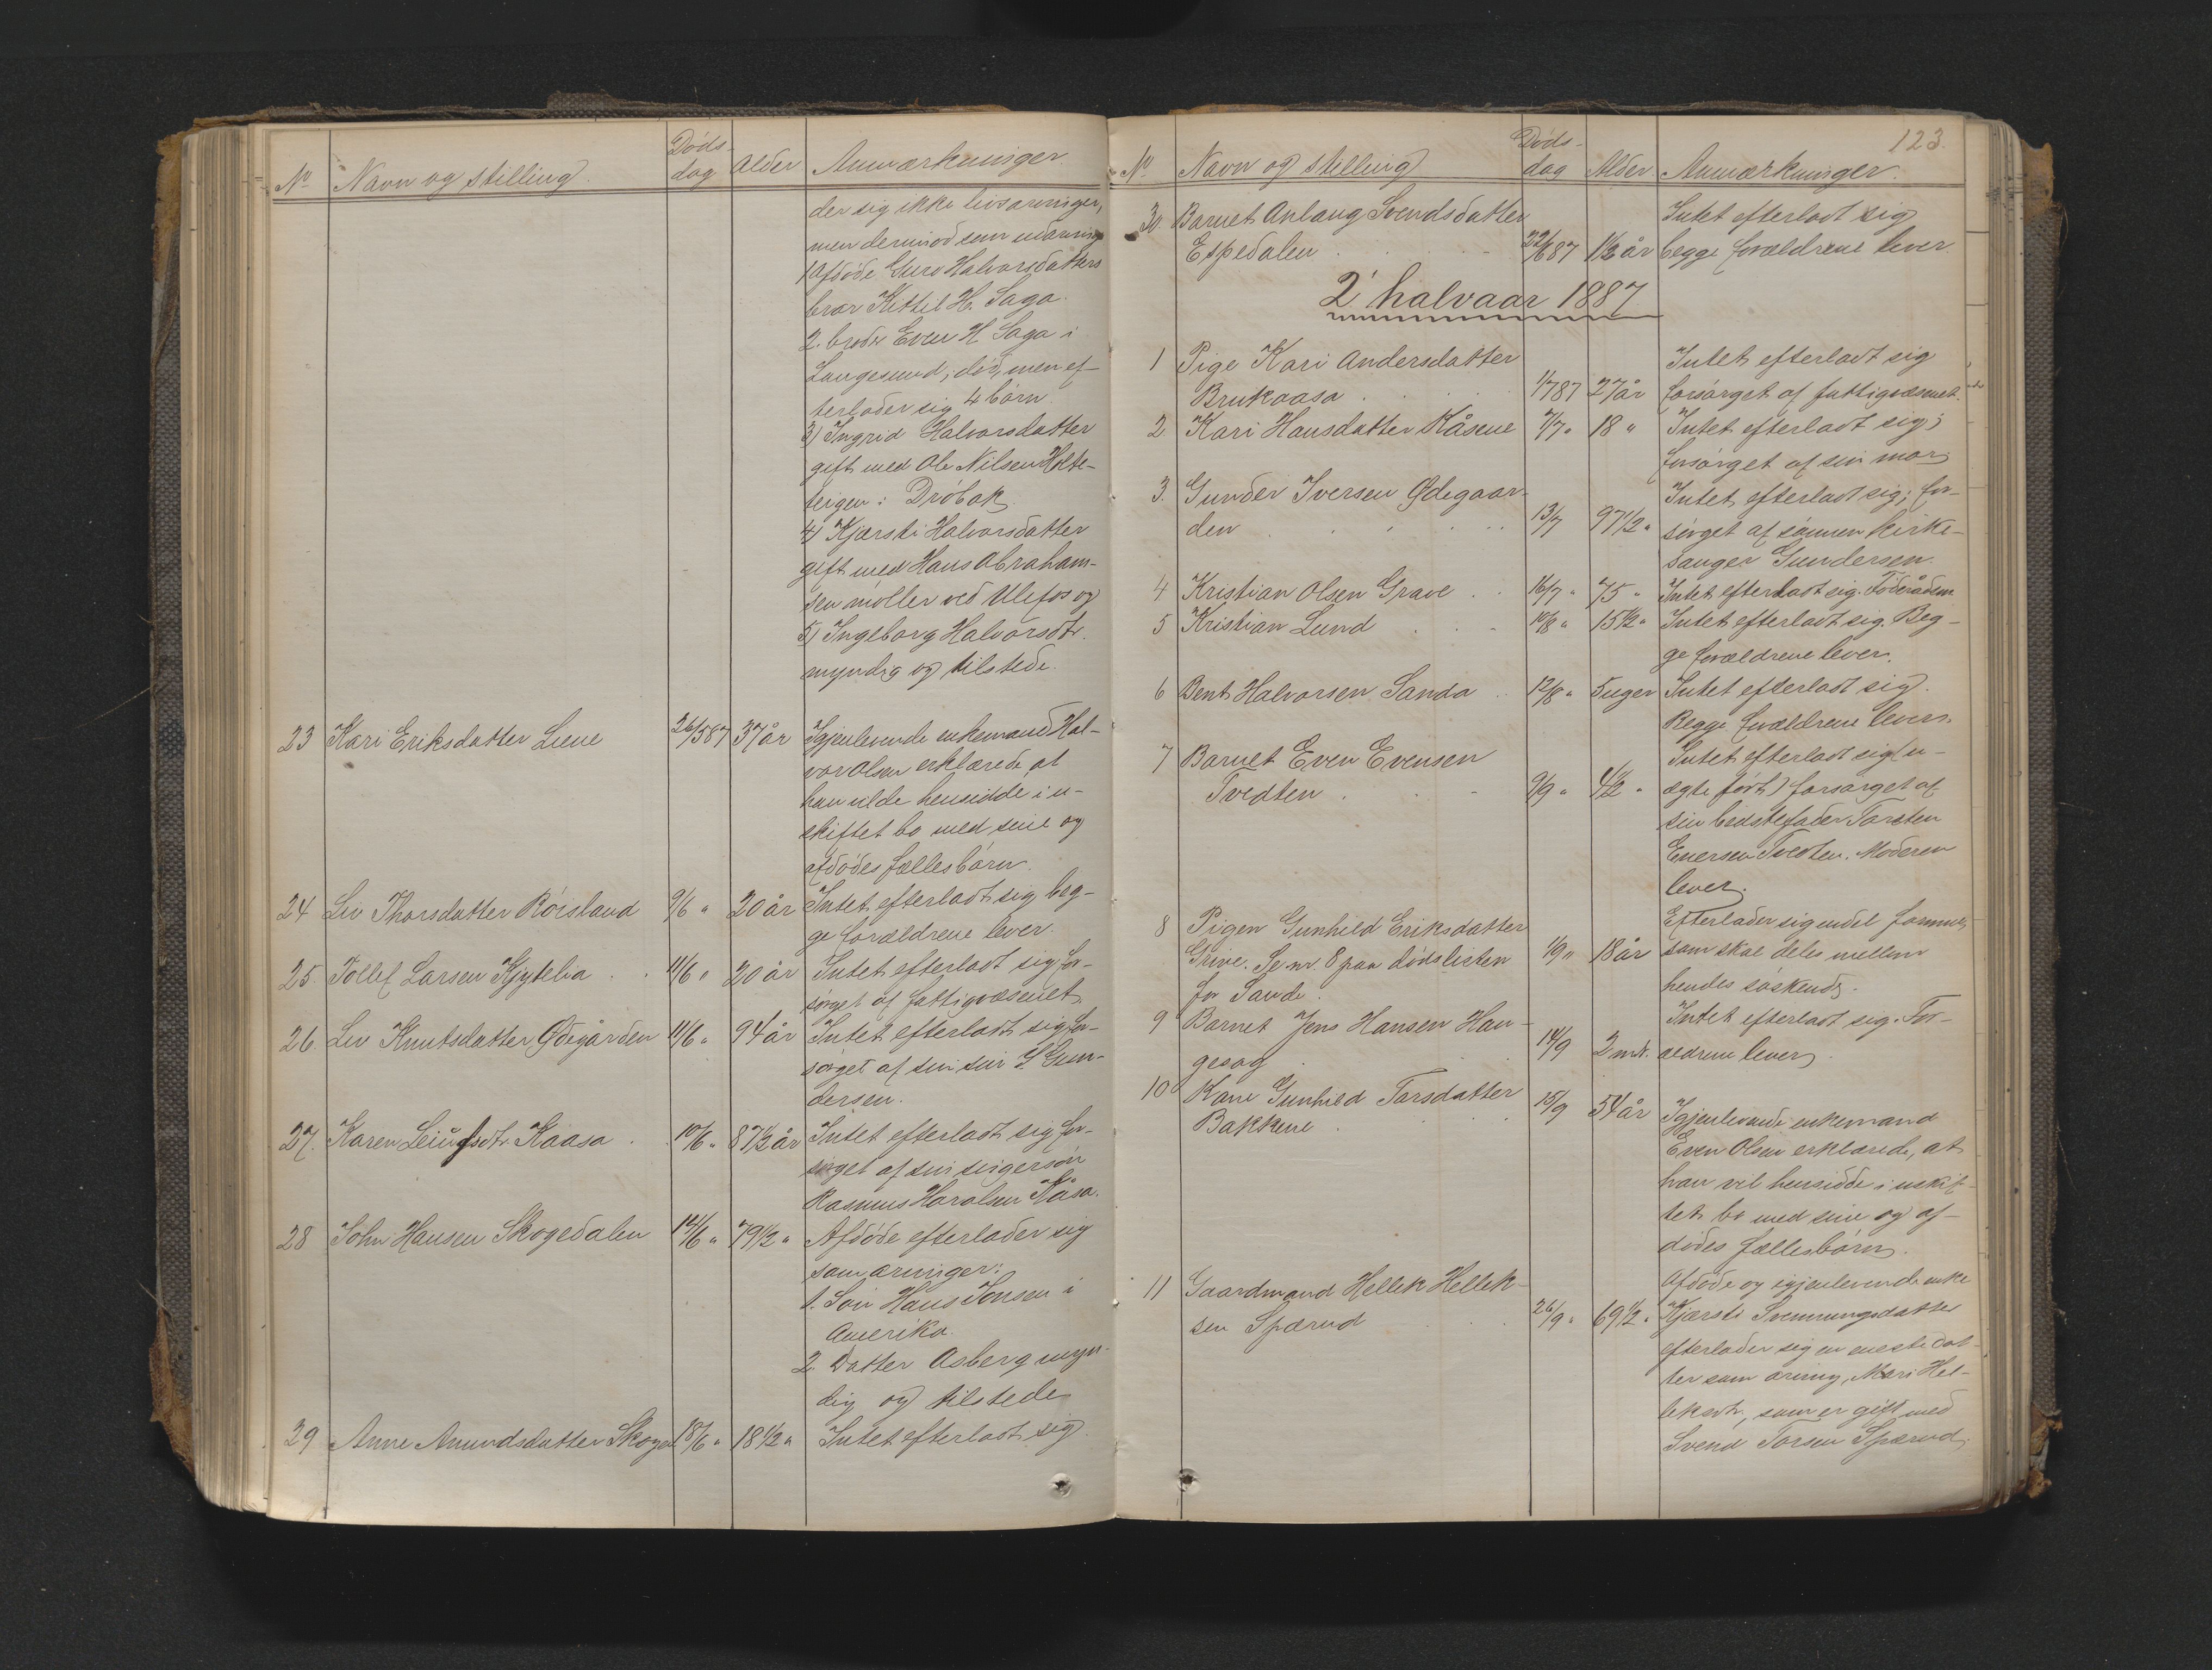 No Navn og stilling. Døds-dag Alder Anmærkninger
der sig ikke livsarvinger,
men derimod som
1) Afdøde Guro Halvorsdatters
bror Kittil H. Saga.
2. broder Even H. Saga i
Langesund; død, men ef-
terlader sig 4 børn.
3) Ingrid Halvorsdatter
gift med Ole Nilsen Holte-
Drøbak
4) Kjærsti Halvorsdatter
gift med Hans Abraham-
sen møller ved Ulefos og
5) Ingeborg Halvorsdtr.
myndig og tilstede.
23 Kari Eriksdatter Liene 26/5 87 37 år Igjenlevende enkemand Hal-
vor Olsen erklærede at
han vilde hensidde i u-
skiftet bo med sine og
afdødes fællesbørn.
24 Liv Thorsdatter Røisland 9/6 " 20 år Intet efterladt sig, beg-
ge forældrene lever.
25. Tollef Larsen 11/6 " 20 år Intet efterladt sig, for-
sørget af fattigvæsenet.
26. Liv Knutsdatter Ødegården 11/6 " 94 år Intet efterladt sig, for-
sørget af sin søn Gun-
dersen.
27. Karen Kaasa 10/6 " 87 1/2 år Intet efterladt sig, for-
sørget af sin svigersøn
Rasmus Haralsen Kåsa.
28 John Hansen Skogedalen 14/6 " 79 1/2 " Afdøde efterlader sig
som arvinger:
1. Søn Hans Jonsen i
Amerika.
2. Datter Asberg myn-
dig og tilstede
29 Anne Amundsdatter 18/6 " 18 1/2 " Intet efterladt sig
123.
No Navn og stilling Døds-dag Alder Anmærkninger.
30. Barnet Anlaug Svendsdatter Intet efterladt sig
Espedalen 22/6 87 1 1/2 år begge forældrene lever.
2' halvaar 1887.
1 Pige Kari Andersdatter Intet efterladt sig
Brukaasa 1/7 87 27 år forsørget af fattigvæsenet.
2 Kari Hansdatter Kåsene 7/7 " 18 " Intet efterladt sig;
forsørget af sin mor
3. Gunder Iversen Ødegaar- Intet efterladt sig; for-
den 13/7 97 1/2 " sørget af sønnen kirke-
sanger Gundersen.
4 Kristian Olsen Grave 16/7 " 75 " Intet efterladt sig. Føderådsm.
5 Kristian Lund 10/8 " 15 1/2 " Intet efterladt sig. Beg-
ge forældrene lever.
6 Bent Halvorsen Sanda 12/8 " 5 uger Intet efterladt sig.
Begge forældrene lever.
7 Barnet Even Evensen Intet efterladt sig (u-
Tvedten 9/9 " 4 1/2 " ægte født) forsørget af
sin bedstefader Torsten
Enersen Tvedten. Moderen
lever.
8 Pigen Gunhild Eriksdatter Efterlader sig endel formue,
Grive. Se nr. 8 paa dødslisten 1/9 " 18 år som skal deles mellem
for Sande. hendes søskende.
9 Barnet Jens Hansen Hau- Intet efterladt sig. For-
gesag 14/9 2 md. ældrene lever.
10 Kone Gunhild Torsdatter 15/9 54 år Igjenlevende enkemand
Bakkene
Even Olsen erklærede, at
han vil hensidde i uskif-
tet bo med sine og af-
dødes fællesbørn.
11 Gaardmand Hellek Hellek- Afdøde og igjenlevende enke
sen Spærud 26/9 " 69 1/2 " Kjærsti Svenningsdatter
efterlader sig en eneste dat-
ter som arving, Mari Hel-
leksdtr., som er gift med
Svend Torsen Spærud.